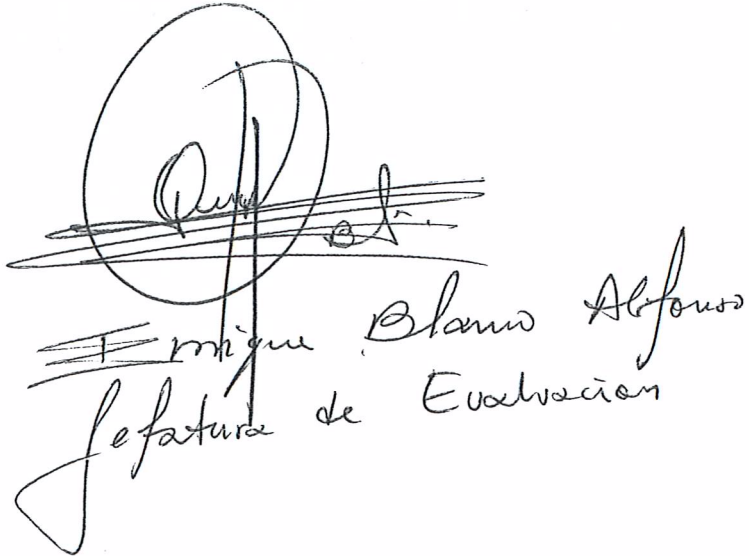 Enrique Blanco Alifonso
Jefatura de Evaluacion